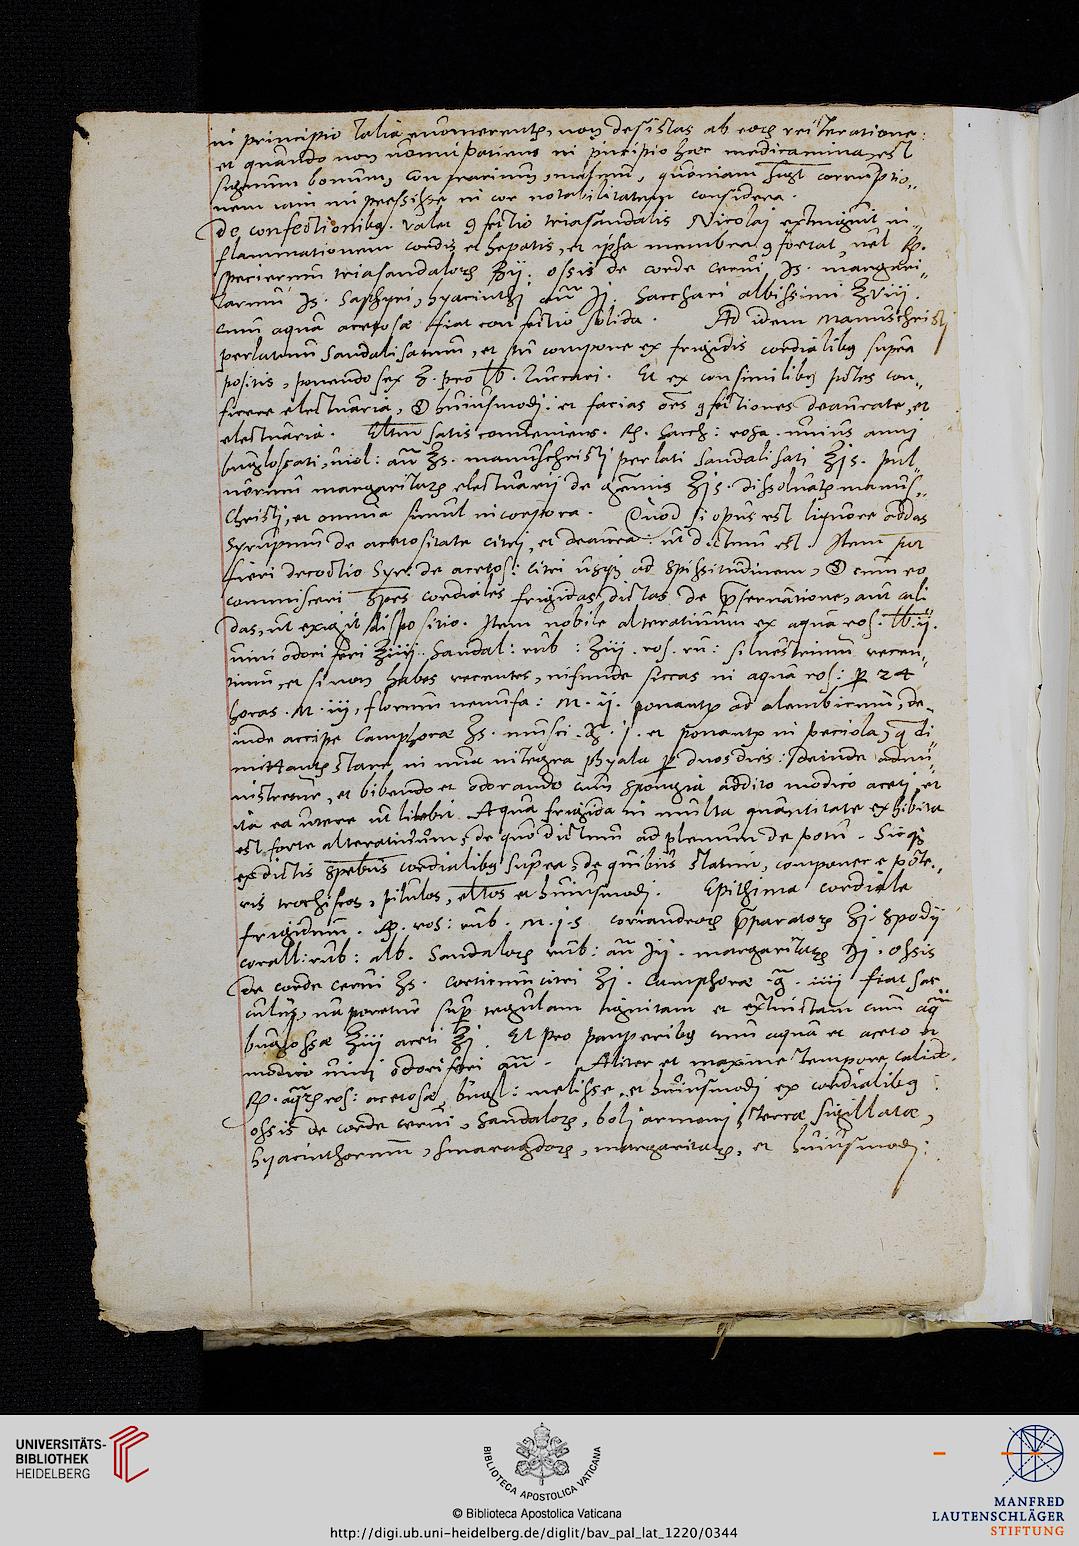 in principio talia euomerentur, non desistas ab eorum reiteratione:
et quando non uomit patiens in principio haec medicamina, est
signum bonum, contrarium, malum, quoniam corruptio„
nem iam impressisse in cor notabilitatem considera.
De confectionibus. valet 9fectio triasandalis Nicolaj extinguit in„
flammationem cordis et hepatis, et ipsa membra 9fortat, uel ℞.
specierum triasandalorum ʒij. ossis de corde cerui ℈s. margari„
tarum ℈s. Saphyri, hyacinthj aū ℈j. Sacchari albissimi ℥viij.
cum aqua acetosae fiat confectio solida. Ad idem manuschristj
perlatum sandalisatum, et compone ex frigidis cordialibus supra
positis, ponendo sex ʒ. pro lb. zuccari. Et ex consimilibus potes con„
ficere electuaria, huiusmodi: et facias oēs 9fectiones deaurate, et
electuaria. satis conueniens. ℞. Sacch: rosa. unius annj
buglossati, uiol: aū ℥s. manuschristj perlati sandalisati ℥js. pul„
uerum margaritarum electuarij de gemmis ʒjs. dissoluatur manus„
christj, et omnia simul incorpora. Quod si opus est liquore addas
Syrupum de acetositate citrj, et deaurea. ut dictum est. Item
fieri decoctio Syr: de acetos: citri usque ad spissitudinem, cum eo
commisceri spēs cordiales frigidas dictas de praeseruatione, aut cali
das, ut exigit dispositio. Item nobile alteratiuum ex aqua ros. lb ij.
uini odoriferi ℥iiij. Sandal: rub: ʒiij. ros. ru: siluestrium recen„
tium, et si non habes recentes, infunde siccas in aqua ros: per 24
horas. M. iij, florum nenufa: M. ij. ponantur ad alembicum, de„
inde accipe Camphorae ʒs. musci j. et ponantur in peciola, q di
mittantur stare in una integra phyala per duos dies: deinde admi„
nistretur, et bibendo et odorando cum spongia addito modico acetj, et
ita ea utere ut libebit. Aqua frigida in multa quantitate exhibita
est forte alteratiuum, de quo dictum ad plenum de potu. Sicque
ex dictis spebus cordialibus supra, de quibus statim, componere pote„
ris trochiscos, pilulos, eltos et huiusmodj. Epithima cordiale
frigidum. ℞. ros: rub. M. j. s coriandrorum praeparatorum ʒj. Spodij
corall: rub: alb. Sandalorum rub: aū ℈ij. margaritarum ℈j. ossis
de corde cerui ʒs. corticum citri ʒj. Camphorae . iiij fiat sac
culus, uaporetur super tegulam ignitam et extinctam cum
buglossae ℥iij aceti ℥j. Et pro pauperibus cum aqua et aceto et
modico uinj odoriferi aū. Aliter et maxime tempore calido.
℞. ros: acetosae, bugl: melisse, et huiusmodj ex cordialibus:
ossis de corde cerui, sandalorum, bolj armenj, terrae sigillatae,
hyacinthorum, smaragdorum, margaritarum, et huiusmodj:
UNIVERSITÄTS-
BIBLIOTHEK
HEIDELBERG
BIBLIOTECA APOSTOLICA VATICANA
© Biblioteca Apostolica Vaticana
http://digi.ub.uni-heidelberg.de/diglit/bav_pal_lat_1220/0344
MANFRED
LAUTENSCHLÄGER
STIFTUNG